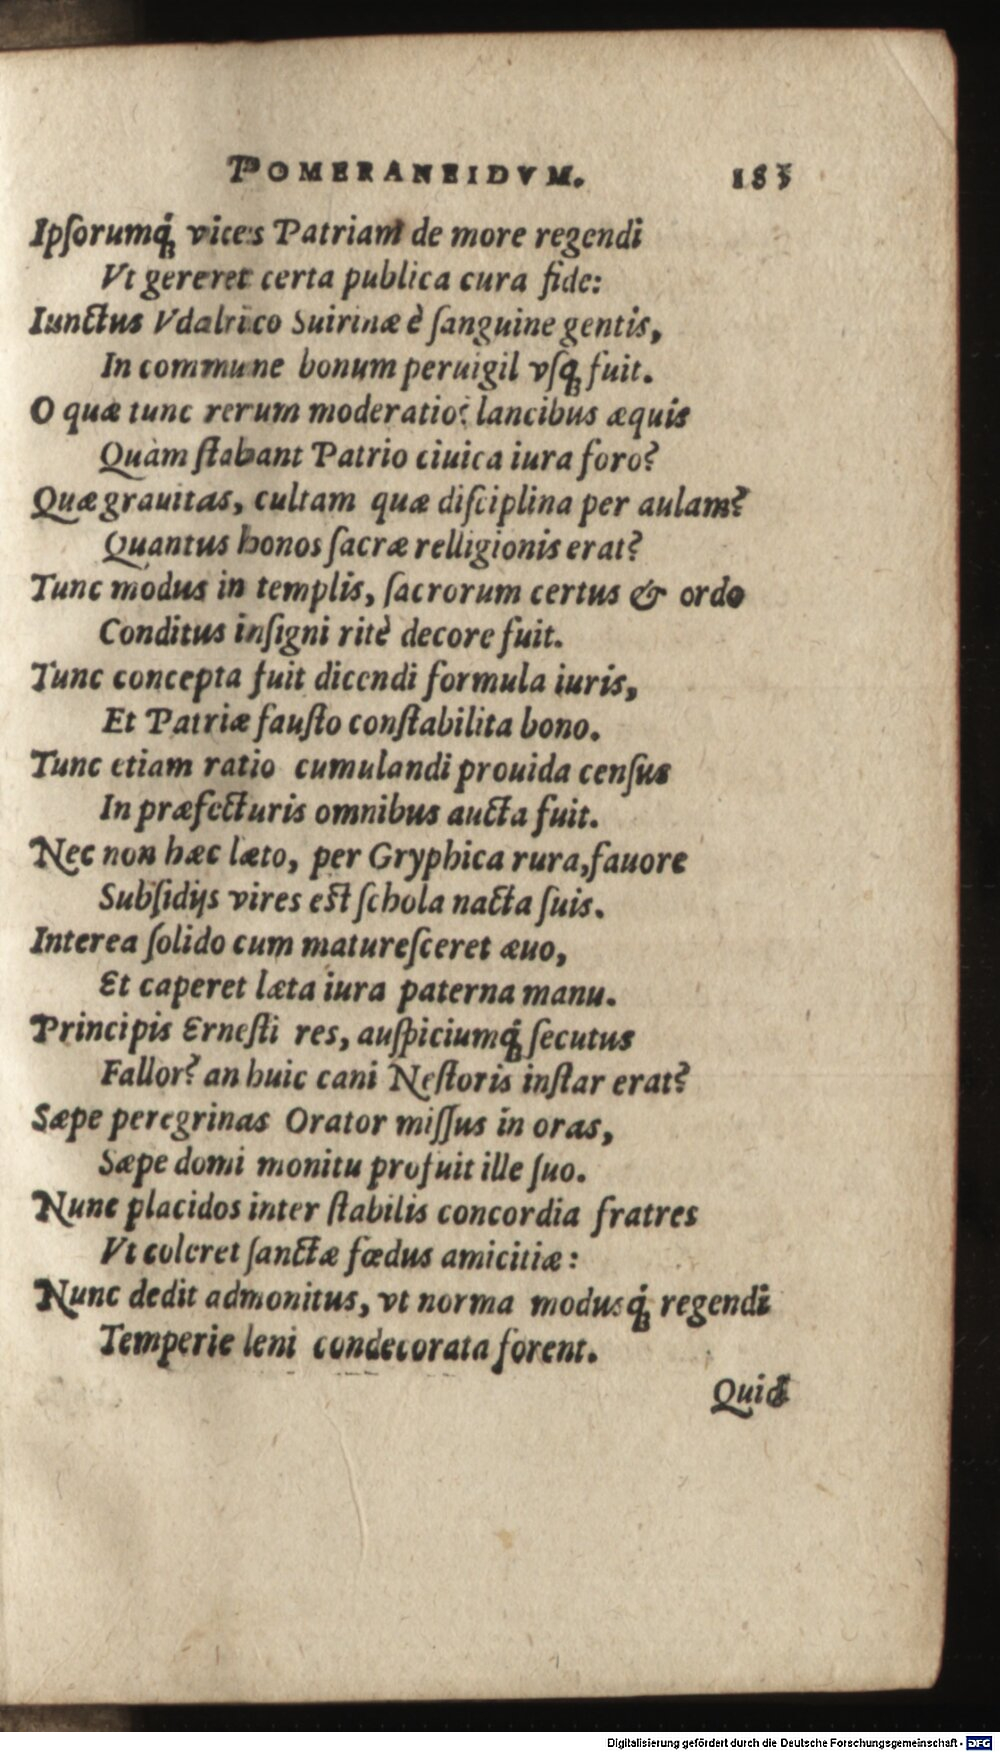 POMERANEIDVM. 185
Ipſorumq́ꝫ vices Patriam de more regendi
Vt gereret certa publica cura fide:
Iunctus Vdalrico Suirinæ è ſanguine gentis,
In commune bonum peruigil vſqꝫ fuit.
O quæ tunc rerum moderatio? lancibus æquis
Quàm ſtabant Patrio ciuica iura foro?
Quæ grauitas, cultam quæ diſciplina per aulam?
Quantus honos ſacræ relligionis erat?
Tunc modus in templis, ſacrorum certus & ordo
Conditus inſigni ritè decore fuit.
Tunc concepta fuit dicendi formula iuris,
Et Patriæ fauſto conſtabilita bono.
Tunc etiam ratio cumulandi prouida cenſus
In præfecturis omnibus aucta fuit.
Nec non hæc læto, per Gryphica rura, fauore
Subſidijs vires eſt ſchola nacta ſuis.
Interea ſolido cum matureſceret æuo,
Et caperet læta iura paterna manu.
Principis Erneſti res, auſpiciumq́ꝫ ſecutus
Fallor? an huic cani Neſtoris inſtar erat?
Sæpe peregrinas Orator miſſus in oras,
Sæpe domi monitu profuit ille ſuo.
Nunc placidos inter ſtabilis concordia fratres
Vt coleret ſanctæ fœdus amicitiæ:
Nunc dedit admonitus, vt norma modusq́ꝫ regendi
Temperie leni condecorata forent.
Quid
Digitalisierung gefördert durch die Deutsche Forschungsgemeinschaft - DFG